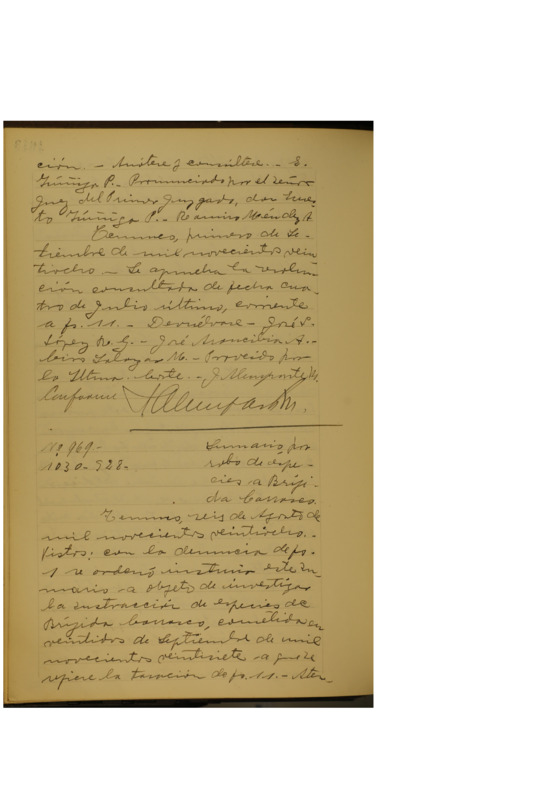 ción. - Anótese y consúltese. - E.
Zúñiga P. - Pronunciado por el señor
Juez del Primer Juzgado, don
Zúñiga P. - Ramiro Méndez A.
Temuco, primero de Se-
tiembre de mil novecientos vein
tiocho. - Se aprueba la resolu-
ción consultada de fecha cua-
tro de Julio último, corriente
a fs. 11. - Devuélvase - José S.
López R. G. - José Arancibia A. -
Salazar M. - Proveído por
la Iltma. Corte. - J.
Conforme
No. 969. -
1030 - 928 -
Sumario por
robo de espe-
cies a Bríji-
da Carrasco.
Temuco, seis de Agosto de
mil novecientos veintiocho. -
Vistos: con la denuncia de fs.
1 se ordenó instruir este su-
mario a objeto de investigar
la sustracción de especies de
Bríjida Carrasco, cometida en
veintidos de Septiembre de mil
novecientos veintisiete a que se
refiere la tasación de fs. 11. - Aten-